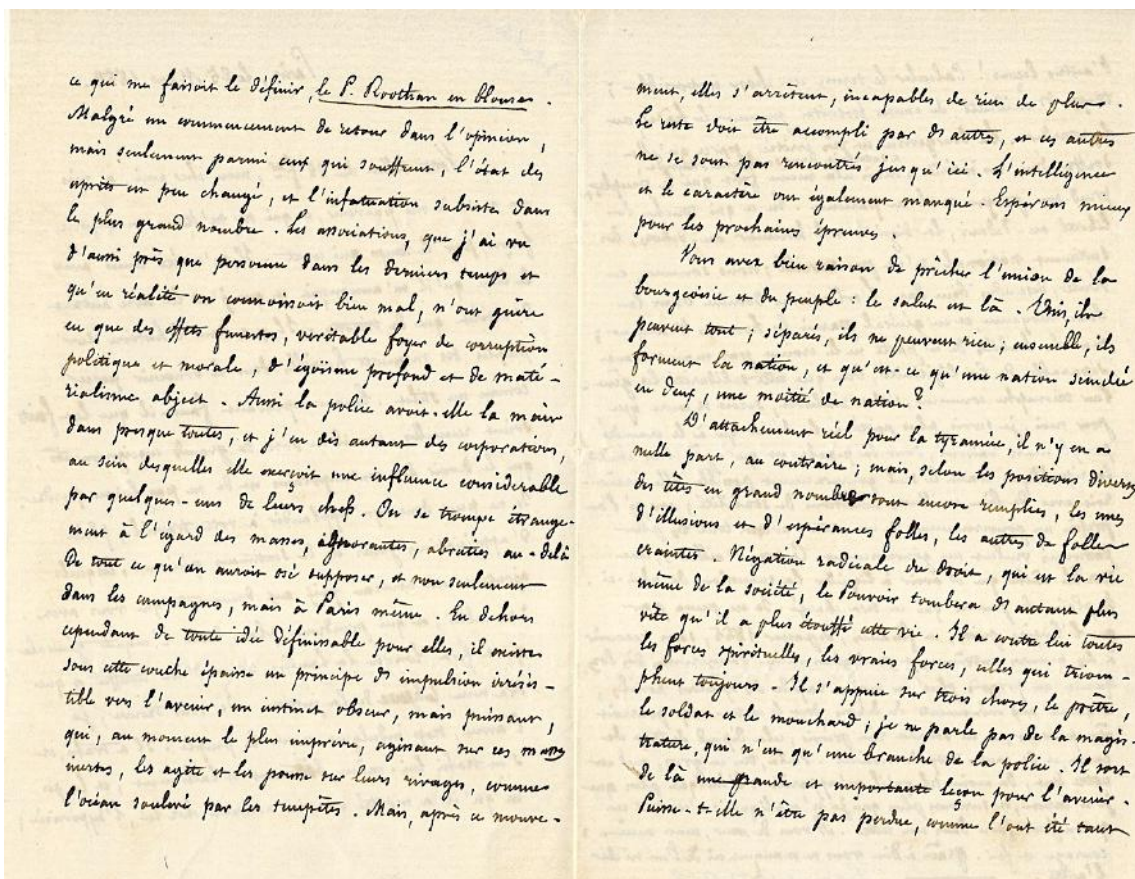 ce qui me faisoit le définir, le P. Roothan en blouse.
Malgré un commencement de retour dans l'opinion,
mais seulement parmi ceux qui souffrent, l'état des
esprits est peu changé, et l'infatuation subsiste dans
le plus grand nombre. Les associations, que j'ai vu
d'aussi près que personne dans les derniers temps et
qu'en réalité on connoissoit bien mal, n'ont guère
eu que des effets funestes, veritable foyer de corruption
politique et morale, d'égoïsme profond et de maté-
rialisme abject. Aussi la police avoit-elle la main
dans presque toutes, et j'en dis autant des corporations,
au sein desquelles elle exerçoit une influence considerable
par quelques-uns de leurs chefs. On se trompe étrange-
ment à l'égard des masses, ignorantes, abruties au-delà
de tout ce qu'on auroit osé supposer, et non seulement
dans les campagnes, mais à Paris même. En dehors
cependant de toute idée définissable pour elles, il existe
sous cette couche épaisse un principe d'impulsion irrésis-
tible vers l'avenir, un instinct obscur, mais puissant,
qui, au moment le plus imprévu, agissant sur ces masses
inertes, les agite et les pousse sur leurs rivages, comme
l'océan soulevé par les tempêtes. Mais, après ce mouve-
ment, elles s'arrêtent, incapables de rien de plus.
Le reste doit être accompli par d'autres, et ces autres
ne se sont pas rencontrés jusqu'ici. L'intelligence
et le caractère ont également manqué. Espérons mieux
pour les prochaines épreuves.
Vous avez bien raison de prêcher l'union de la
bourgeoisie et du peuple : le salut est là. Unis, ils
peuvent tout ; séparés, ils ne peuvent rien ; ensemble, ils
forment la nation, et qu'est-ce qu'une nation scindée
en deux, une moitié de nation ?
D'attachement réel pour la tyrannie, il n'y en a
nulle part, au contraire ; mais, selon les positions diverses
des têtes en grand nombre sont encore remplies, les unes
d'illusions et d'espérances folles, les autres de folles
craintes. Négation radicale du droit, qui est la vie
même de la société, le Pouvoir tombera d'autant plus
vîte qu'il a plus étouffé cette vie. Il a contre lui toutes
les forces spirituelles, les vraies forces, celles qui triom-
phent toujours. Il s'appuie sur trois choses, le prêtre,
le soldat et le mouchard ; je ne parle pas de la magis-
trature, qui n'est qu'une branche de la police. Il sort
de là une grande et importante leçon pour l'avenir.
Puisse-t-elle n'être pas perdue, comme l'ont été tant